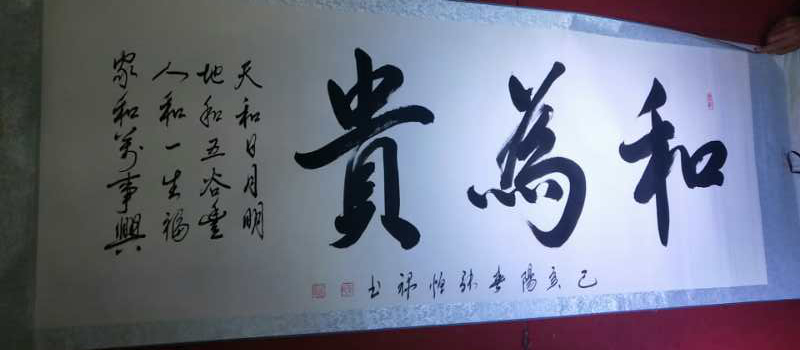 和為貴
天和日月明
地和五谷豐
人和一生福
家和萬事興
己亥陽春張恒禄书